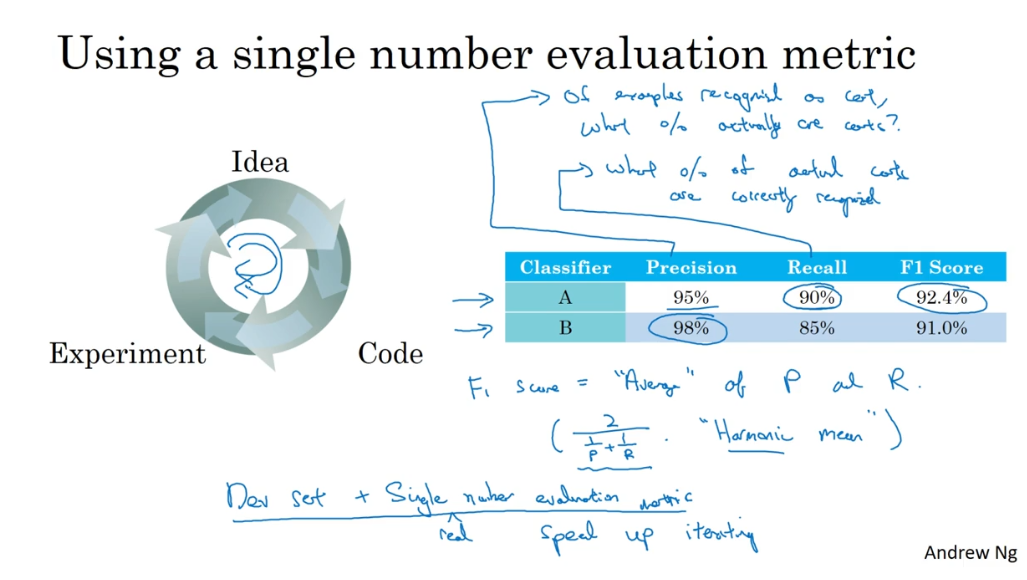 Using a single number evaluation metric
Of examples recognized as cat,
what % actually are cats?
Idea
what % of actual cats
are correctly recognized
Classifier Precision Recall F1 Score
A 95% 90% 92.4%
B 98% 85% 91.0%
Experiment Code
F1 score = "Average" of P and R.
( 2 / (1/P + 1/R) . "Harmonic mean" )
Dev set + Single number evaluation metric
real speed up iterating
Andrew Ng